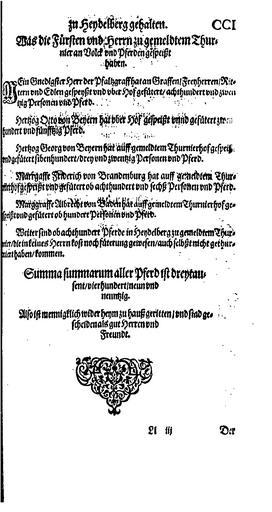 zu Heydelberg gehalten. CCI
Was die Fürsten vnd Herrn zu gemeldtem Thur-
nier an Volck vnd Pferden gespeißt
haben.
Mein Gnedigster Herr der Pfaltzgraff hat an Graffen/ Freyherren/ Rit-
tern vnd Edlen gespeißt vnd vber Hof gefütert/ achthundert vnd zwen-
tzig Personen vnd Pferd.
Hertzog Otto von Beyern hat vber Hof gespeißt vnnd gefütert zwey-
hundert vnd fünfftzig Pferd.
Hertzog Georg von Beyern hat auff gemeldtem Thurnierhof gespeißt
vnd gefütert sibenhundert/ drey vnd zwentzig Personen vnd Pferd.
Marggraffe Friderich von Brandenburg hat auff gemeldtem Thur-
nierhof gespeißt vnd gefütert ob achthundert vnd sechß Personen vnd Pferd.
Marggraffe Albrecht von Baden hat auff gemeldtem Thurnierhof ge-
speißt vnd gefütert ob hundert Personen vnd Pferd.
Weiter sind ob achthundert Pferde in Heydelberg zu gemeldtem Thur-
nier/ die in keines Herrn kost noch füterung gewesen/ auch selbst nicht gethur-
niert haben/ kommen.
Summa summarum aller Pferd ist dreytau-
sent/ vierhundert/ neun vnd
neuntzig.
Also ist menniglich wider heym zu hauß geritten/ vnd sind ge-
scheiden als gut Herren vnd
Freundt.
Ll iij Der